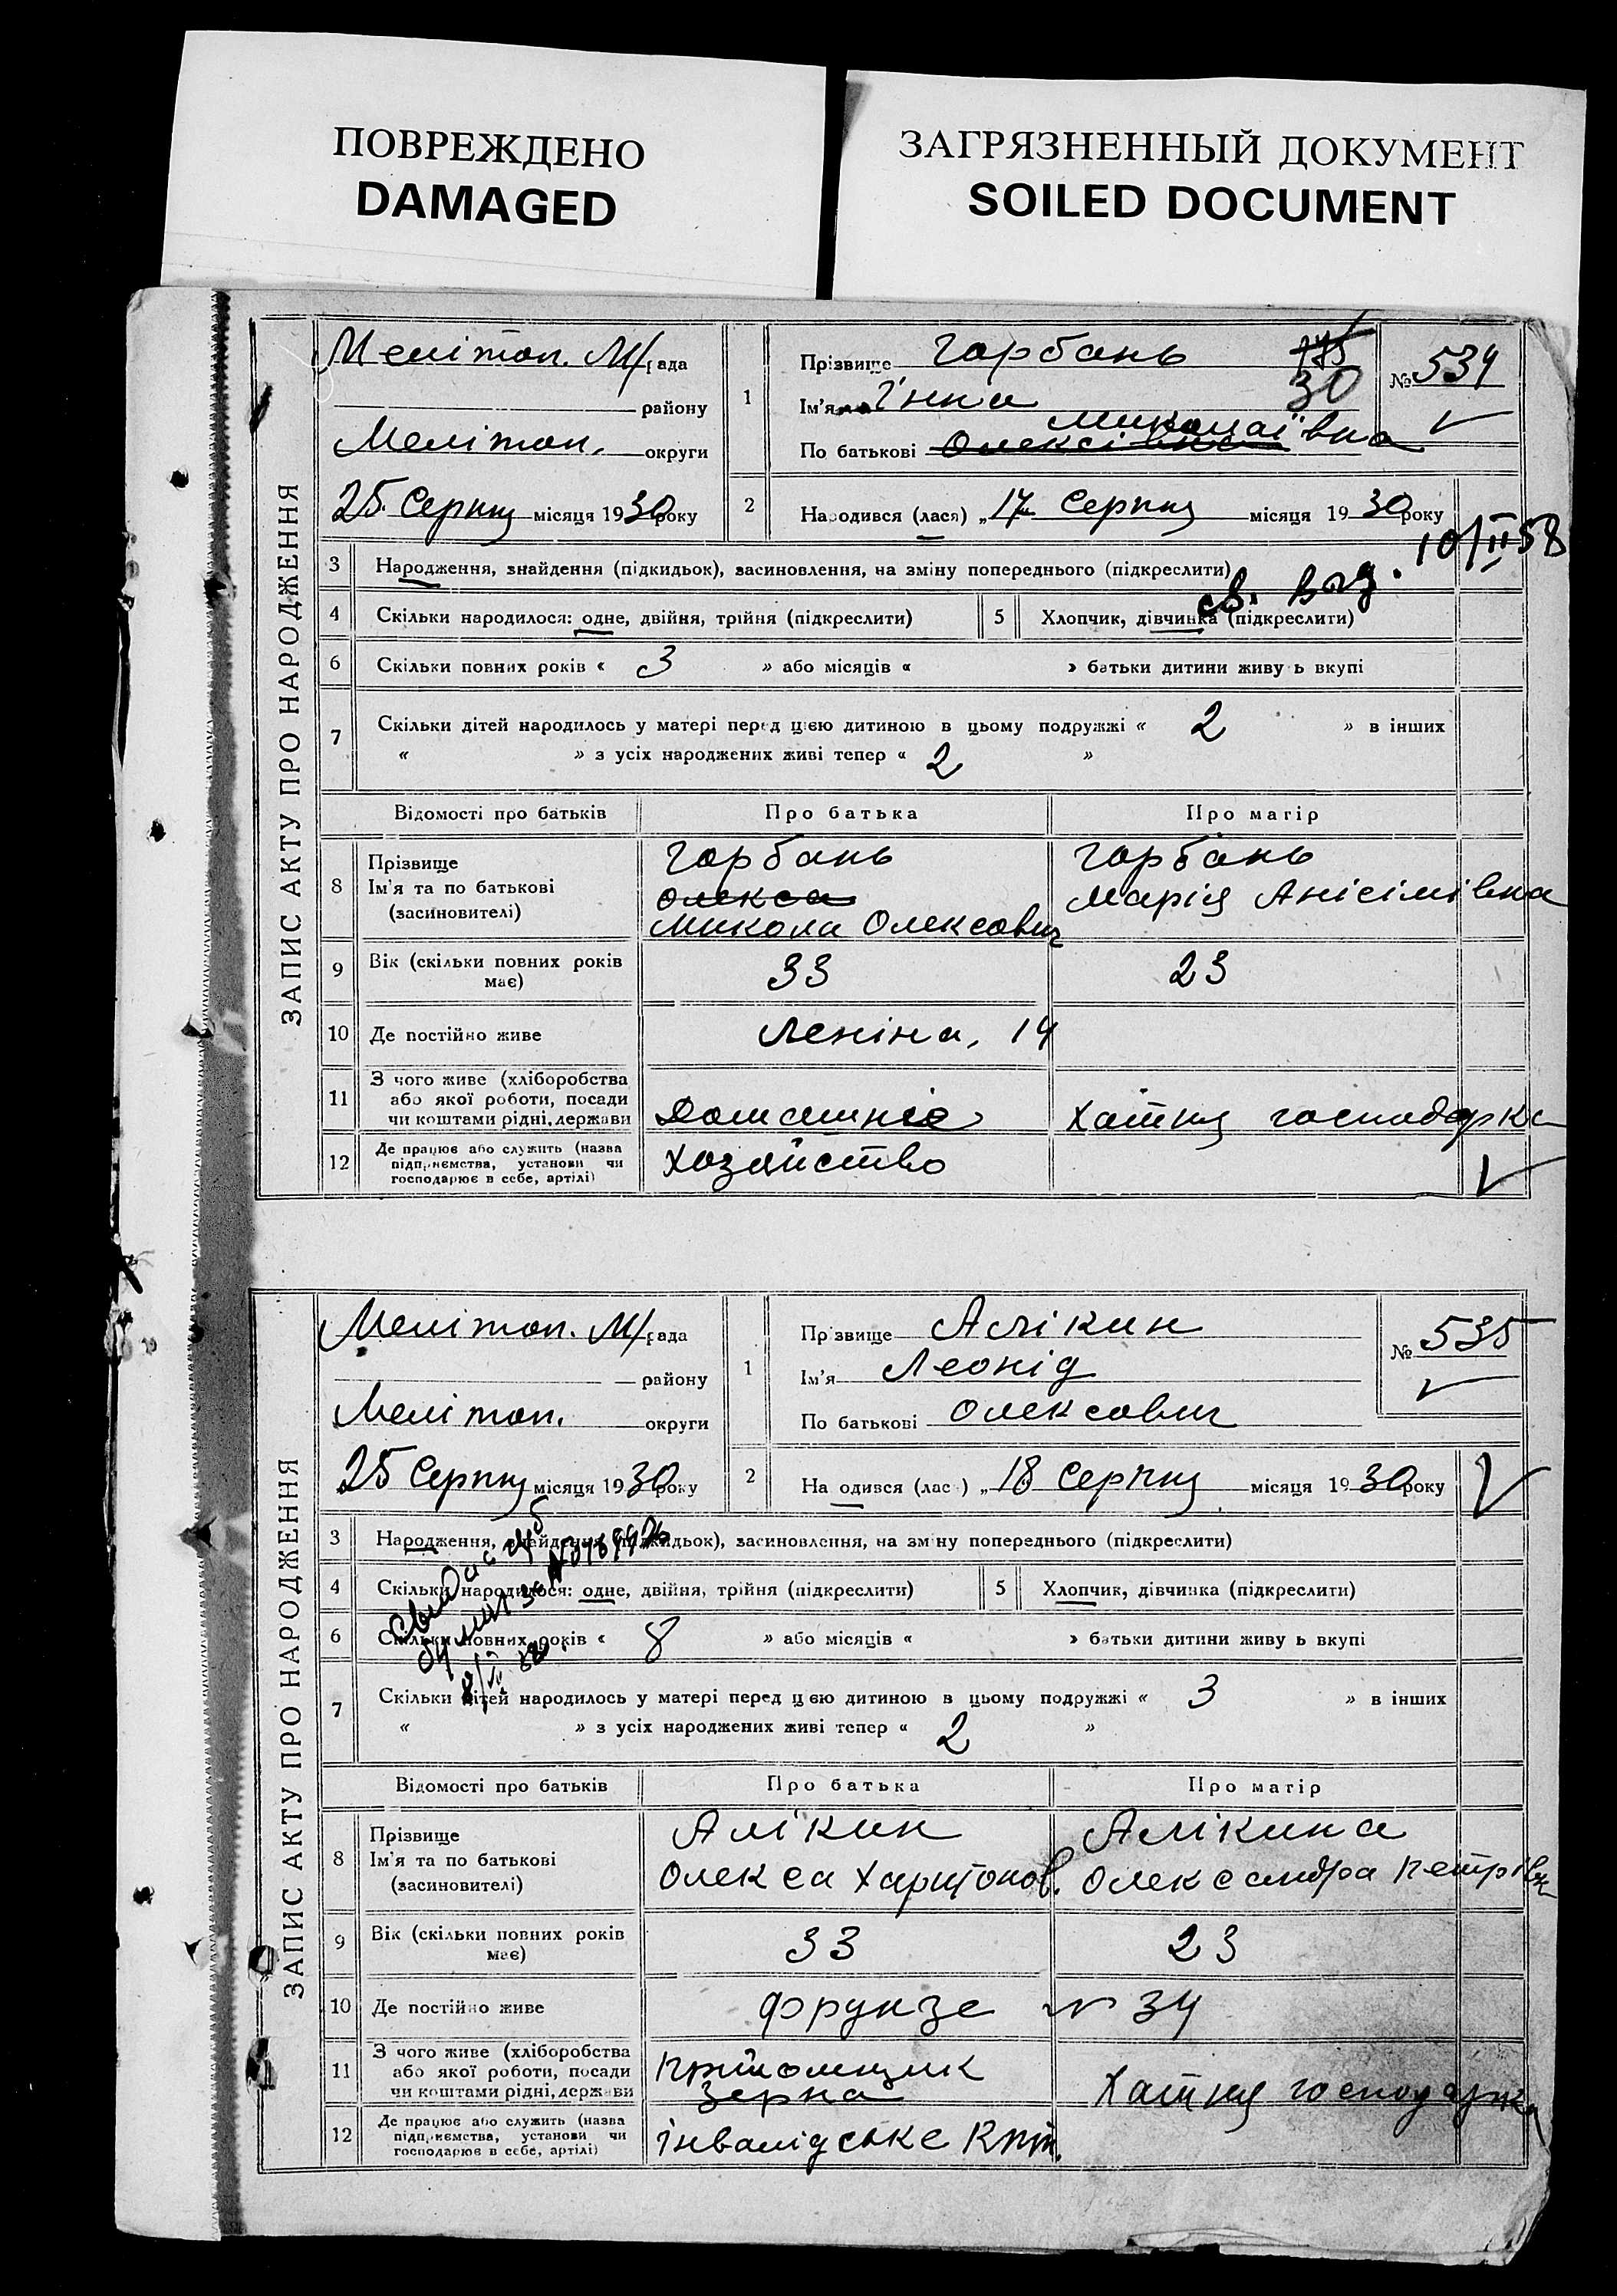 ПОВРЕЖДЕНО
DAMAGED
ЗАГРЯЗНЕННЫЙ ДОКУМЕНТ
SOILED DOCUMENT
ЗАПИС АКТУ ПРО НАРОДЖЕННЯ
Меліпоп. М/рада
району
Меліпоп. округи
25 Серпня місяця 1930 року
1
Прізвище Горбань
175
30
Ім'я Інна
Миколаївна
По батькові Олексівна
№ 534
2 Народився (лася) „17 Серпня місяця 1930 року
10/II 58
св. выд.
3 Народження, знайдення (підкидьок), засиновлення, на зміну попереднього (підкреслити)
4 Скільки народилося: одне, двійня, трійня (підкреслити) 5 Хлопчик, дівчинка (підкреслити)
6 Скільки повних років « 3 » або місяців « » батьки дитини живуть вкупі
7 Скільки дітей народилось у матері перед цією дитиною в цьому подружжі « 2 » в інших
« » з усіх народжених живі тепер « 2 »
Відомості про батьків Про батька Про матір
8 Прізвище Горбань Горбань
Ім'я та по батькові Олекса Марія Анісімівна
(засиновителі) Микола Олексович
9 Вік (скільки повних років має) 33 23
10 Де постійно живе Леніна, 14
11 З чого живе (хліборобства або якої роботи, посади чи коштами рідні, держави Домашнее Хатня господарка
12 Де працює або служить (назва підприємства, установи чи господарює в себе, артілі) Хозяйство
ЗАПИС АКТУ ПРО НАРОДЖЕННЯ
Меліпоп. М/рада
району
Меліпоп. округи
25 Серпня місяця 1930 року
1
Прізвище Алікин
Ім'я Леонід
По батькові Олексович
№ 535
2 Народився (лася) „18 Серпня місяця 1930 року
3 Народження, знайдення (підкидьок), засиновлення, на зміну попереднього (підкреслити)
4 Скільки народилося: одне, двійня, трійня (підкреслити) 5 Хлопчик, дівчинка (підкреслити)
6 Скільки повних років « 8 » або місяців « » батьки дитини живуть вкупі
7 Скільки дітей народилось у матері перед цією дитиною в цьому подружжі « 3 » в інших
« » з усіх народжених живі тепер « 2 »
Відомості про батьків Про батька Про матір
8 Прізвище Алікин Алікина
Ім'я та по батькові Олекса Харитонов. Олександра Петрівн
(засиновителі)
9 Вік (скільки повних років має) 33 23
10 Де постійно живе Фрунзе № 34
11 З чого живе (хліборобства або якої роботи, посади чи коштами рідні, держави зерна Хатня господарка
12 Де працює або служить (назва підприємства, установи чи господарює в себе, артілі) інвалідське